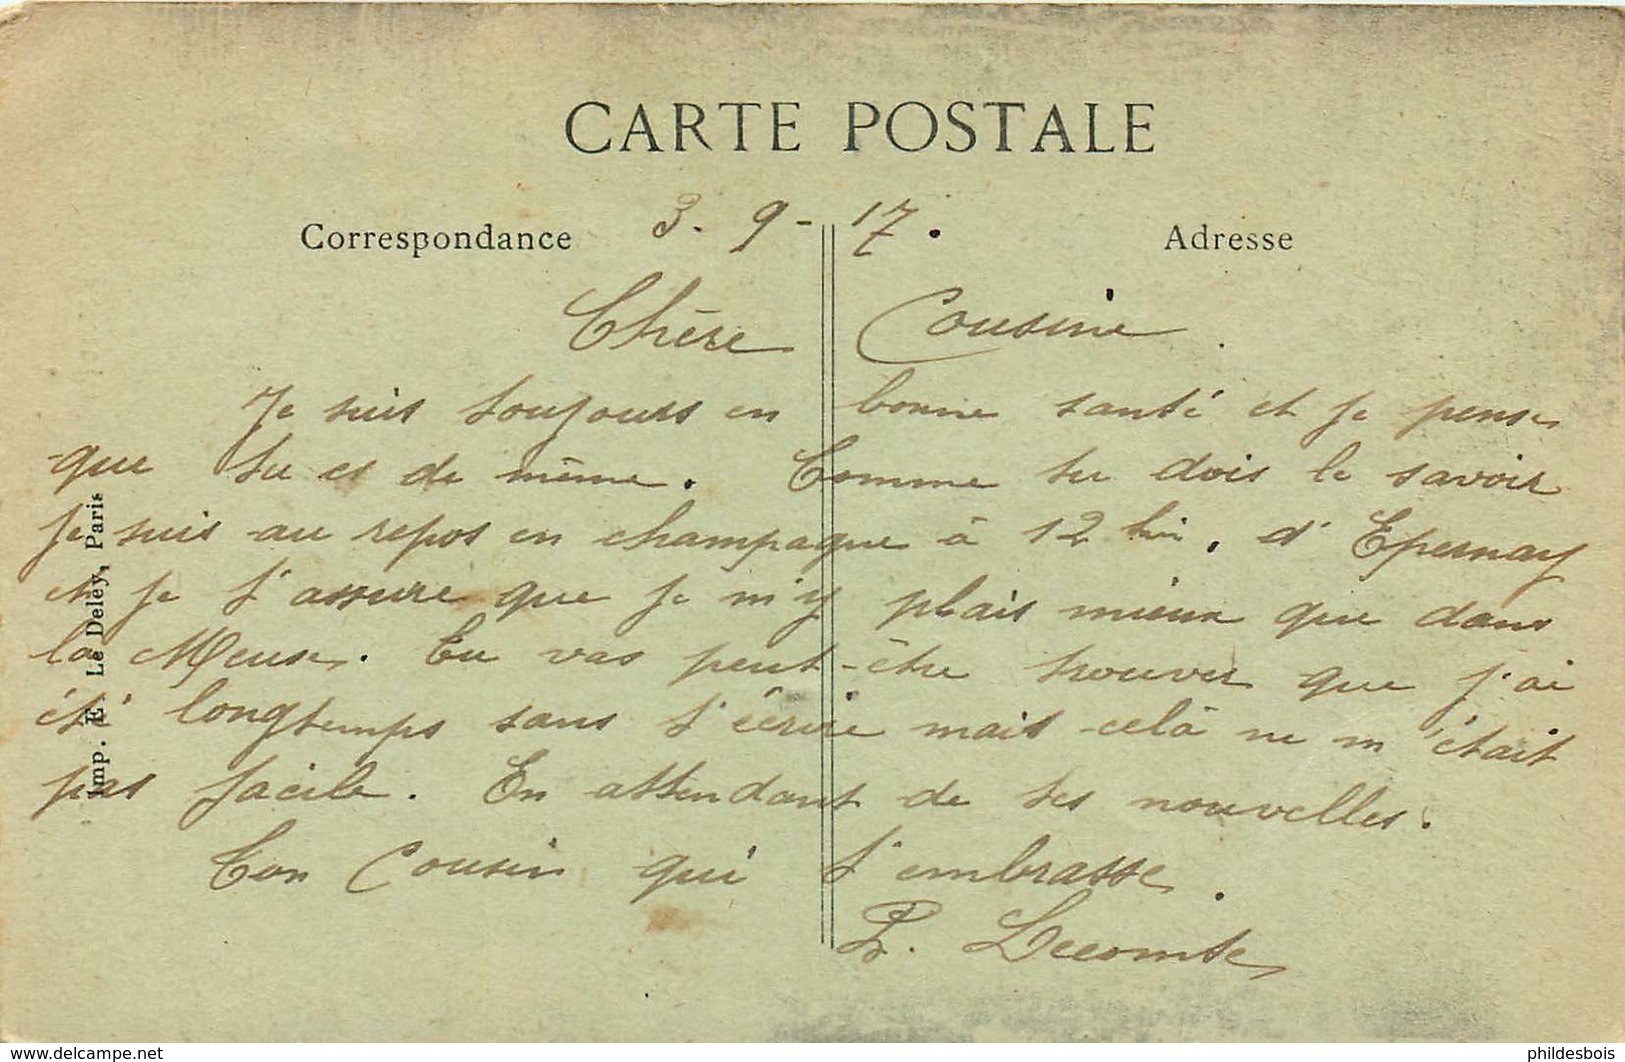 CARTE POSTALE
Correspondance 3. 9 - 17. Adresse
Chère Cousine
Je suis toujours en bonne santé et je pense
que tu es de même. Comme tu dois le savoir
je suis au repos en champagne à 12 km. d'Epernay
et je t'assure que je m'y plais mieux que dans
la Meuse. Tu vas peut-être trouver que j'ai
été longtemps sans t'écrire mais celà ne m'était
pas facile. En attendant de tes nouvelles.
Ton Cousin qui t'embrasse.
Lecomte
Imp. E. Le Deley, Paris
www.delcampe.net
phildesbois